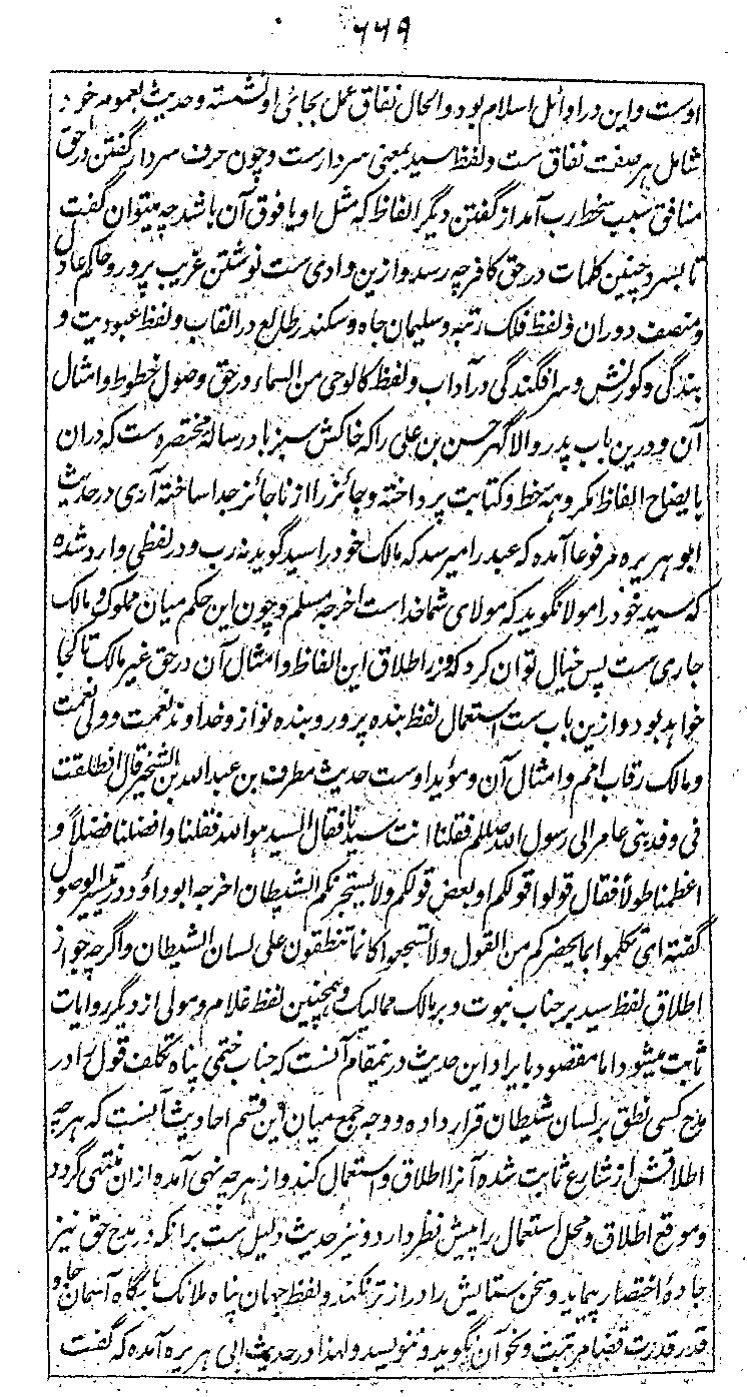 ۶۶۹
اوست و این در اوائل اسلام بود و الحال نفاق عمل بجائی او نشسته و حدیث بعمومه خود
شامل هر صفت نفاق ست و لفظ سید بمعنی سردارست و چون حرف سردار گفتن در حق
منافق سبب سخط رب آمد از گفتن دیگر الفاظ که مثل او یا فوق آن باشد چه میتوان گفت
تا بسرد چنین کلمات در حق کافر چه رسد و ازین وادی ست نوشتن غریب پرور و حاکم عادل
و منصف دوران و لفظ فلک رتبه و سلیمان جاه و سکندر طالع در القاب و لفظ عبودیت و
بندگی و کورنش و سرافگندگی در آداب و لفظ کالوحی من السماء در حق وصول خطوط و امثال
آن و درین باب پدر والا گهر حسن بن علی را که خاکش سبز باد رساله مختصره ست که دران
بایضاح الفاظ مکروهه خط و کتابت پرداخته و جائز را از ناجائز جدا ساخته آری در حدیث
ابو هریره مرفوعا آمده که عبد را میرسد که مالک خود را سید گوید نه رب و در لفظی وارد شده
که سید خود را مولا نگوید که مولای شما خداست اخرجه مسلم و چون این حکم میان مملوک و مالک
جاری ست پس خیال توان کرد که وزر اطلاق این الفاظ و امثال آن در حق غیر مالک تا کجا
خواهد بود و ازین باب ست استعمال لفظ بنده پرور و بنده نواز و خداوند نعمت و ولی نعمت
و مالک رقاب امم و امثال آن و مؤید اوست حدیث مطرف بن عبد الله بن الشخیر قال انطلقت
فی وفد بنی عامر الی رسول الله صللم فقلنا انت سیدنا فقال السید هو الله فقلنا و افضلنا فضلاً و
اعظمنا طولاً فقال قولوا قولکم او بعض قولکم ولا یستجرنکم الشیطان اخرجه ابو داؤد در تیسیر الوصول
گفته ای تکلموا بما یحضرکم من القول ولا تسجعوا کانما تنطقون علی لسان الشیطان و اگرچه جواز
اطلاق لفظ سید بر جناب نبوت و بر مالک ممالیک و همچنین لفظ غلام و مولی از دیگر روایات
ثابت میشود اما مقصود بایراد این حدیث درینمقام آنست که جناب ختمی پناه تکلف قول را در
مدح کسی نطق بر لسان شیطان قرار داده و وجه جمع میان این قسم احادیث آنست که هرچه
اطلاقش از شارع ثابت شده آنرا اطلاق و استعمال کند و از هرچه نهی آمده ازان منتهی گردد
و موقع اطلاق و محل استعمال را پیش نظر دارد و نیز حدیث دلیل ست برانکه در مدح حق نیز
جاده اختصار پیماید و سخن ستایش را درازتر نکند و لفظ جهان پناه ملائک بارگاه آسمان جاه و
قدر قدرت قضا مرتبت و نحو آن نگوید و ننویسد و لهذا در حدیث ابی هریره آمده که گفت